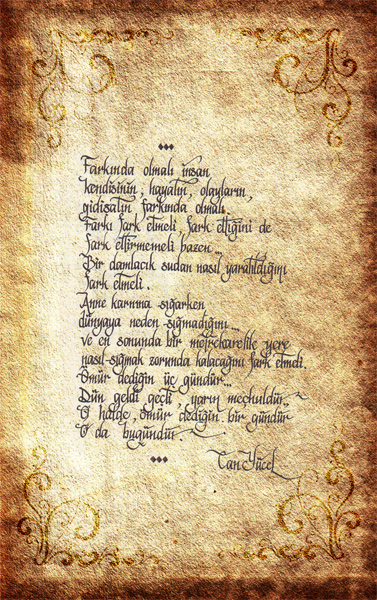 Farkında olmalı insan
kendisinin, hayatın, olayların,
gidişatın farkında olmalı
Farkı fark etmeli, fark ettiğini de
fark ettirmemeli bazen...
Bir damlacık sudan nasıl yaratıldığını
fark etmeli.
Anne karnına sığarken
dünyaya neden sığmadığını...
ve en sonunda bir metrekarelik yere
nasıl sığmak zorunda kalacağını fark etmeli.
Ömür dediğin üç gündür...
Dün geldi geçti, yarın meçhuldür.
O halde, ömür dediğin bir gündür
O da bugündür
Can Yücel